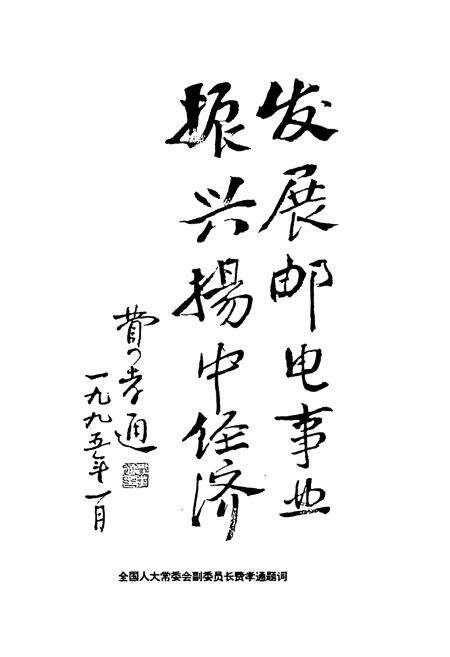 发展邮电事业
振兴揚中经济
费孝通
一九九五年一月
全国人大常委会副委员长费孝通题词